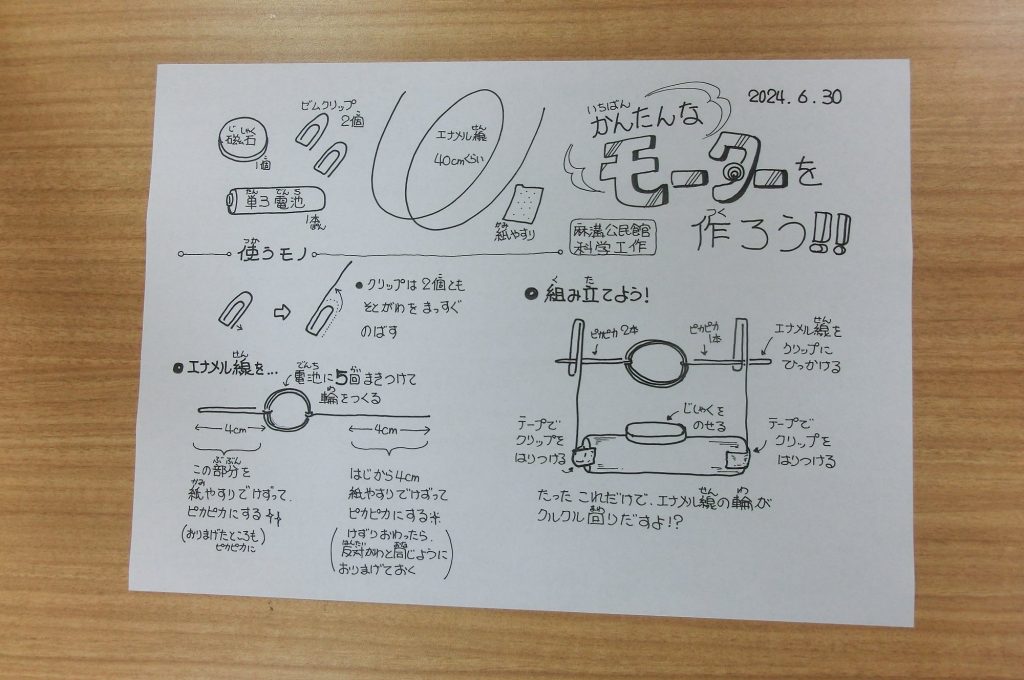 2024.6.30
いちばん
かんたんな
モーターを
つく
作ろう!!
麻溝公民館
科学工作
じしゃく
磁石
1個
ゼムクリップ
2個
エナメル線
せん
40cmくらい
たん でんち
単3電池
1本
かみ
紙やすり
つか
使うモノ
●クリップは2個とも
そとがわをまっすぐ
のばす
せん
●エナメル線を…
でんち かい
電池に5回まきつけて
わ
輪をつくる
4cm
4cm
ぶぶん
この部分を
かみ
紙やすりでけずって、
ピカピカにする
(おりまげたところも
ピカピカに)
はじから4cm
紙やすりでけずって
ピカピカにする
(けずりおわったら、
はんたい おな
反対がわと同じように
おりまげておく)
く た
●組み立てよう!
ピカピカ2本
ピカピカ
1本
せん
エナメル線を
クリップに
ひっかける
じしゃくを
のせる
テープで
クリップを
はりつける
テープで
クリップを
はりつける
せん わ
たったこれだけで、エナメル線の輪が
まわ
クルクル回りだすよ!?